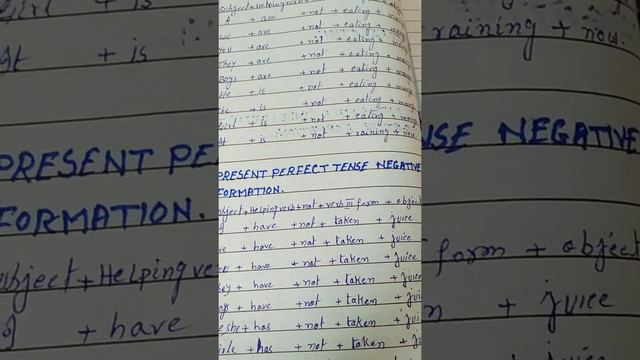 Subject+Helping verb + not + eating
I + am + not + eating +
we + are + not + eating +
You + are + not + eating +
They + are + not + eating +
Boys + are + not + eating +
He + is + not + eating +
She + is + not + eating +
Girl + is + not + eating +
It + is + not + raining + now
PRESENT PERFECT TENSE NEGATIVE
FORMATION.
Subject+Helping verb+not+verb III form + object
I + have + not + taken + juice
we + have + not + taken + juice
you + have + not + taken + juice
They + have + not + taken + juice
Boys + have + not + taken + juice
He she + has + not + taken + juice
+ has + not + taken +